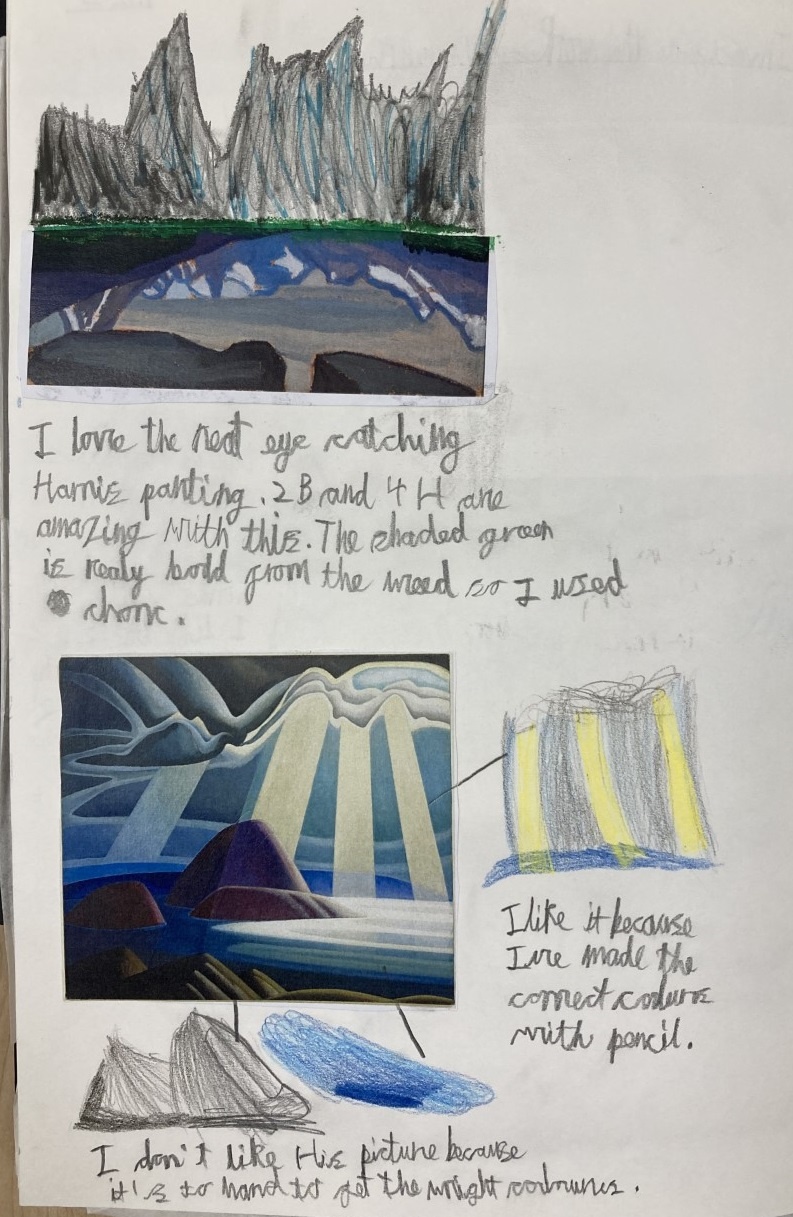 I love the neat eye catching
Harris panting. 2B and 4H are
amazing with this. The shaded green
is realy bold from the weed so I used
chonc.
I like it because
I've made the
correct colurs
with pencil.
I don't like this picture because
it's to hard to get the wright colouurs.